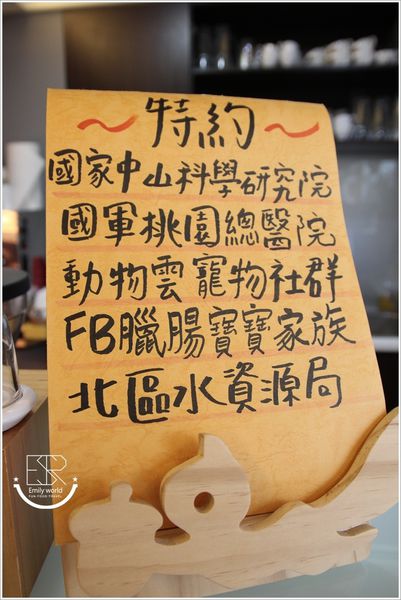 ～特約～
國家中山科學研究院
國軍桃園總醫院
動物雲寵物社群
FB臘腸寶寶家族
北區水資源局
ESR
Emily world
FUN FOOD TRAVEL